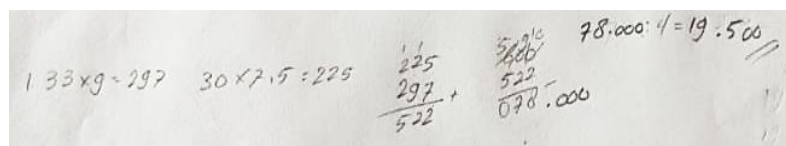 1 33x9=297 30x7.5=225
225
297 +
522
600
522 -
078.000
78.000:4=19.500